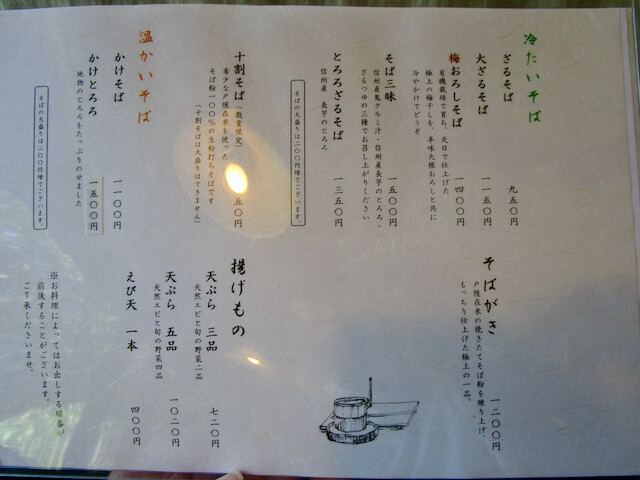 冷たいそば
ざるそば 九五〇円
大ざるそば 一一五〇円
梅おろしそば 一四〇〇円
有機栽培で育ち、天日で仕上げた
極上の梅干しを、辛味大根おろしと共に
冷やかけでどうぞ
そば三昧 一五〇〇円
信州産鬼クルミ汁・信州産長芋のとろろ、
ざるつゆの三種でお召し上がりください
とろろざるそば 一三五〇円
信州産 長芋のとろろ
そばの大盛りは二〇〇円増でございます。
十割そば(数量限定) 五〇円
希少な戸隠在来を使った
そば粉一〇〇%の生粉打ちそばです
(十割そばは大盛りはできません)
温かいそば
かけそば 一一〇〇円
かけとろろ 一五〇〇円
地物のとろろをたっぷりのせました
そばの大盛りは二〇〇円増でございます。
そばがき 一二〇〇円
戸隠在来の挽きたてそば粉を練り上げ、
もっちり仕上げた極上の一品。
揚げもの
天ぷら 三品 七二〇円
天然エビと旬の野菜二品
天ぷら 五品 一〇二〇円
天然エビと旬の野菜四品
えび天 一本 四〇〇円
※お料理によってはお出しする順番が
前後することがございます。
ご了承くださいませ。